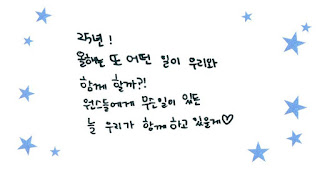 25년!
올해는 또 어떤 일이 우리와
함께 할까?!
원스들에게 무슨일이 있든
늘 우리가 함께하고 있을게♡